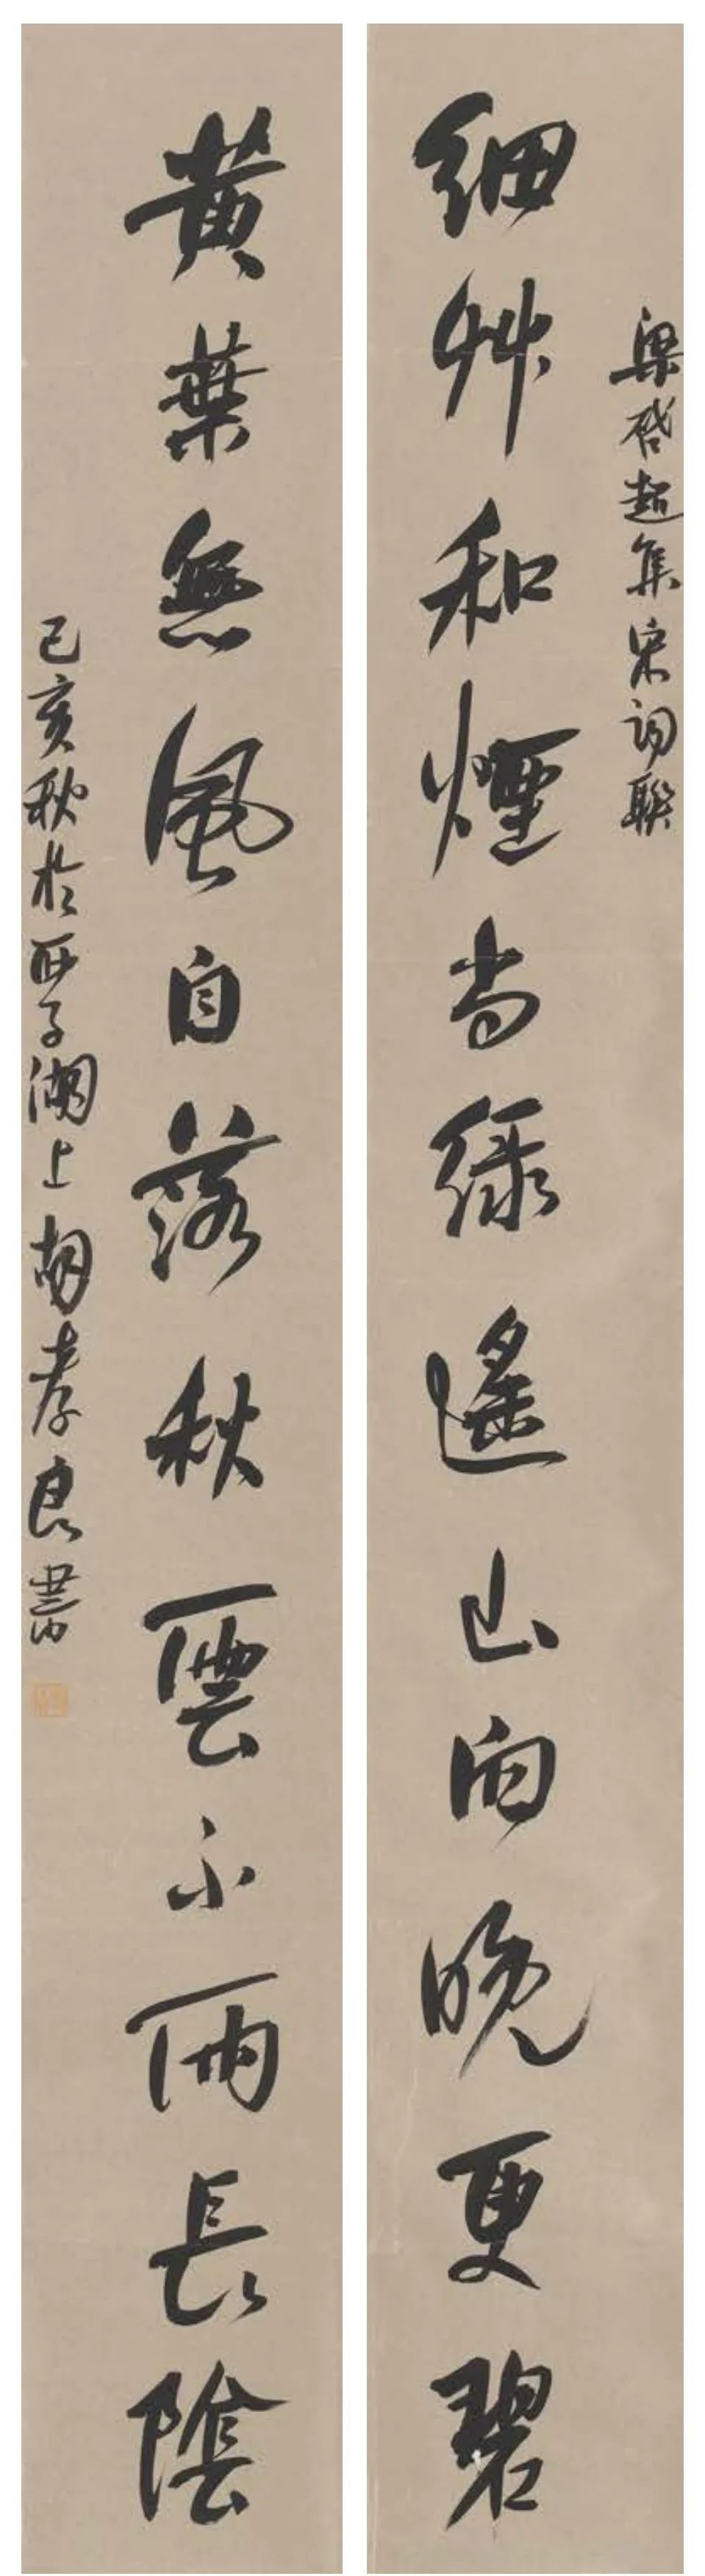 梁啓超集宋詞聯
細艸和煙尚綠遙山向晚更碧
黃葉無風自落秋雲不雨長陰
己亥秋於西子湖上胡孝良書